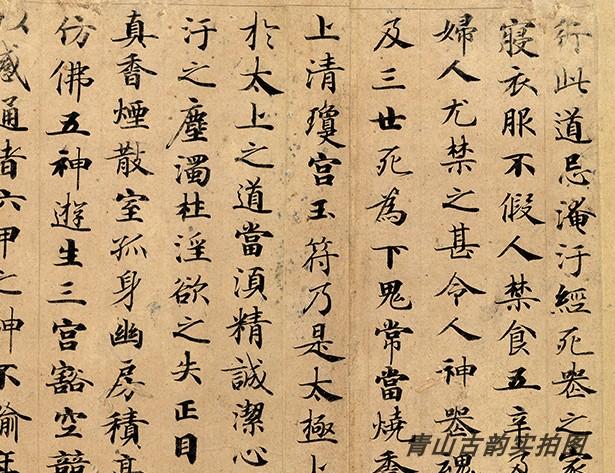 行此道忌淹汙經死喪之家
寢衣服不假人禁食五辛
婦人尤禁之甚令人神喪魂
及三世死為下鬼常當燒香
上清瓊宮玉符乃是太極上
於太上之道當湏精誠潔心
汙之塵濁杜淫欲之失正目
真香煙散室孤身幽房積
仿佛五神遊生三宮豁空競
以感通者六甲之神不踰年
青山古韵实拍图